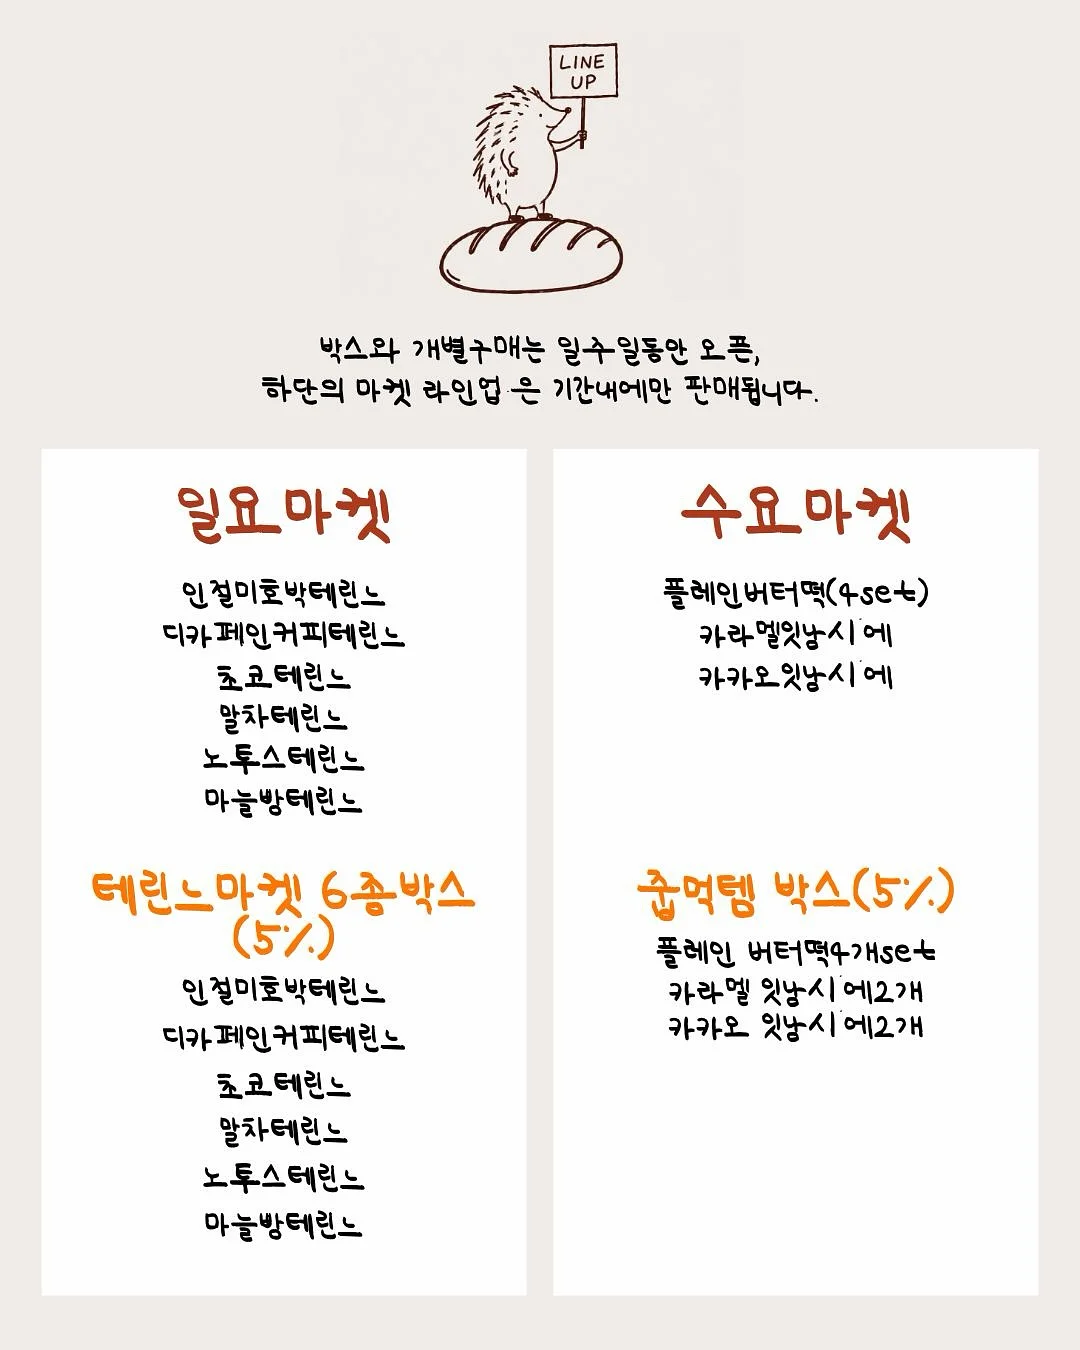 LINE
UP
박스와 개별구매는 일주일동안 오픈,
하단의 마켓 라인업은 기간내에만 판매됩니다.
일요마켓
인절미호박테린느
디카페인커피테린느
초코테린느
말차테린느
노툐스테린느
마늘빵테린느
테린느마켓 6종박스
(5%)
인절미호박테린느
디카페인커피테린느
초코테린느
말차테린느
노툐스테린느
마늘빵테린느
수요마켓
플레인버터떡(4set)
카라멜잇낭시에
카카오잇낭시에
줍먹템 박스(5%)
플레인 버터떡4개set
카라멜 잇낭시에2개
카카오 잇낭시에2개